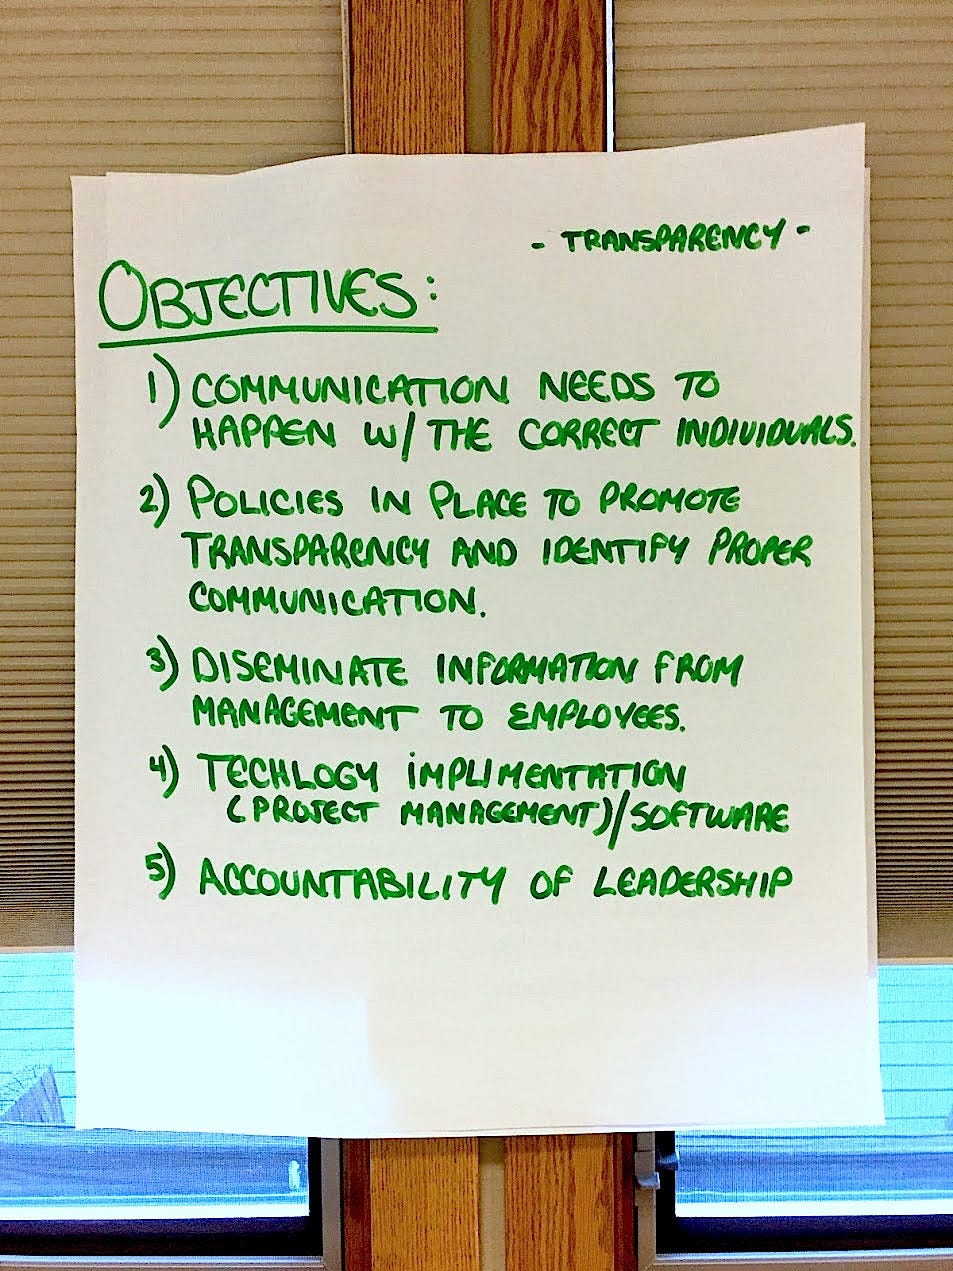 - TRANSPARENCY -
OBJECTIVES:
1) COMMUNICATION NEEDS TO
HAPPEN W/ THE CORRECT INDIVIDUALS.
2) POLICIES IN PLACE TO PROMOTE
TRANSPARENCY AND IDENTIFY PROPER
COMMUNICATION.
3) DISEMINATE INFORMATION FROM
MANAGEMENT TO EMPLOYEES.
4) TECHLOGY IMPLIMENTATION
(PROJECT MANAGEMENT)/SOFTWARE
5) ACCOUNTABILITY OF LEADERSHIP